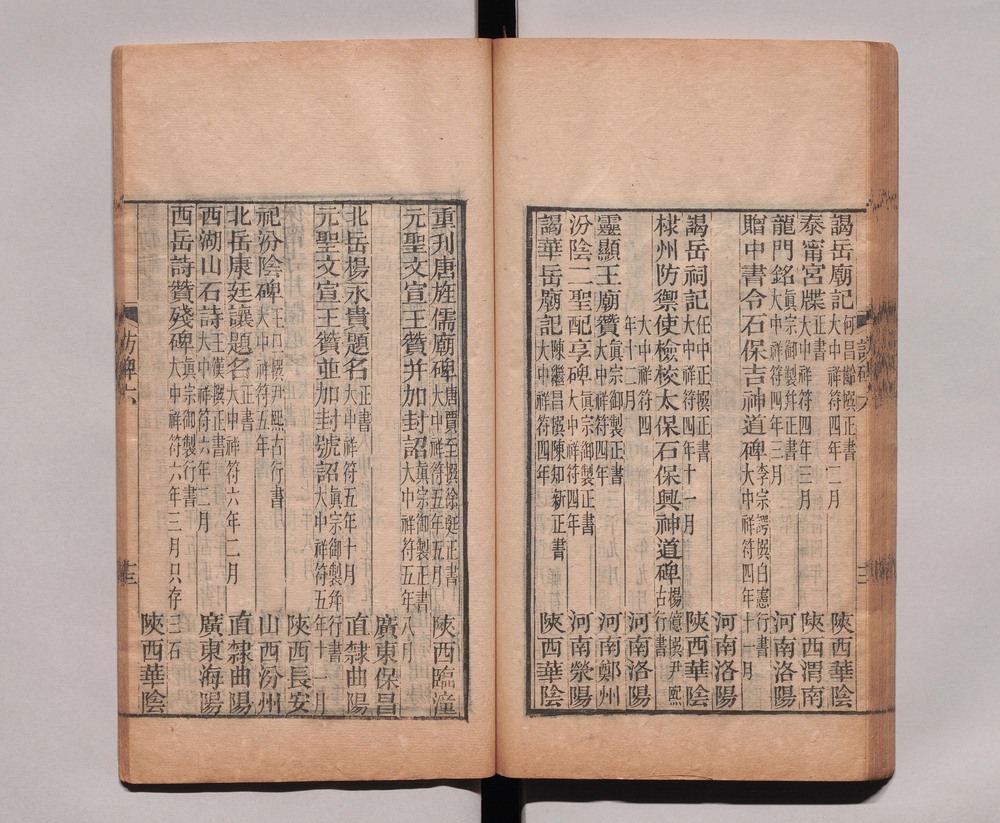 謁岳廟記 何昌齡撰正書 大中祥符四年二月 陝西華陰
泰甯宮牒 正書 大中祥符四年三月 陝西渭南
龍門銘 眞宗御製并正書 大中祥符四年三月 河南洛陽
贈中書令石保吉神道碑 李宗諤撰白憲行書 大中祥符四年十一月
河南洛陽
謁岳祠記 任中正撰正書 大中祥符四年十一月 陝西華陰
棣州防禦使檢校太保石保興神道碑 楊億撰尹熙古行書
大中祥符四年十二月 河南洛陽
靈顯王廟贊 眞宗御製正書 大中祥符四年 河南鄭州
汾陰二聖配享碑 眞宗御製正書 大中祥符四年 河南滎陽
謁華岳廟記 陳繼昌撰陳知新正書 大中祥符四年 陝西華陰
重刋唐旌儒廟碑 唐賈至撰徐珽正書 大中祥符五年五月 陝西臨潼
元聖文宣王贊并加封詔 眞宗御製正書 大中祥符五年八月
廣東保昌
北岳楊永貴題名 正書 大中祥符五年十月 直隸曲陽
元聖文宣王贊並加封號詔 眞宗御製并行書 大中祥符五年十一月
陝西長安
祀汾陰碑 王撰尹熙古行書 大中祥符五年 山西汾州
北岳康廷讓題名 正書 大中祥符六年二月 直隸曲陽
西湖山石詩 王漢撰正書 大中祥符六年二月 廣東海陽
西岳詩贊殘碑 眞宗御製行書 大中祥符六年三月只存三石
陝西華陰
訪碑六